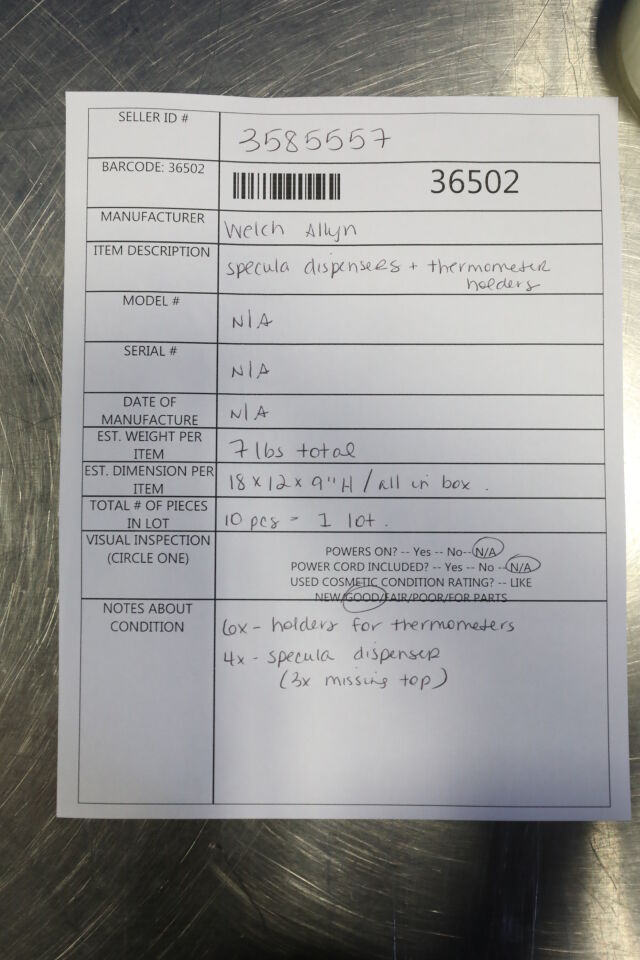 SELLER ID #
3585557
BARCODE: 36502
36502
MANUFACTURER
Welch Allyn
ITEM DESCRIPTION
specula dispensers + thermometer
holders
MODEL #
N/A
SERIAL #
N/A
DATE OF
MANUFACTURE
N/A
EST. WEIGHT PER
ITEM
7 lbs total
EST. DIMENSION PER
ITEM
18 x 12 x 9"H / all in box.
TOTAL # OF PIECES
IN LOT
10 pcs = 1 lot.
VISUAL INSPECTION
(CIRCLE ONE)
POWERS ON? -- Yes -- No--N/A
POWER CORD INCLUDED? -- Yes -- No --N/A
USED COSMETIC CONDITION RATING? -- LIKE
NEW/GOOD/FAIR/POOR/FOR PARTS
NOTES ABOUT
CONDITION
6x - holders for thermometers
4x - specula dispenser
(3x missing top)